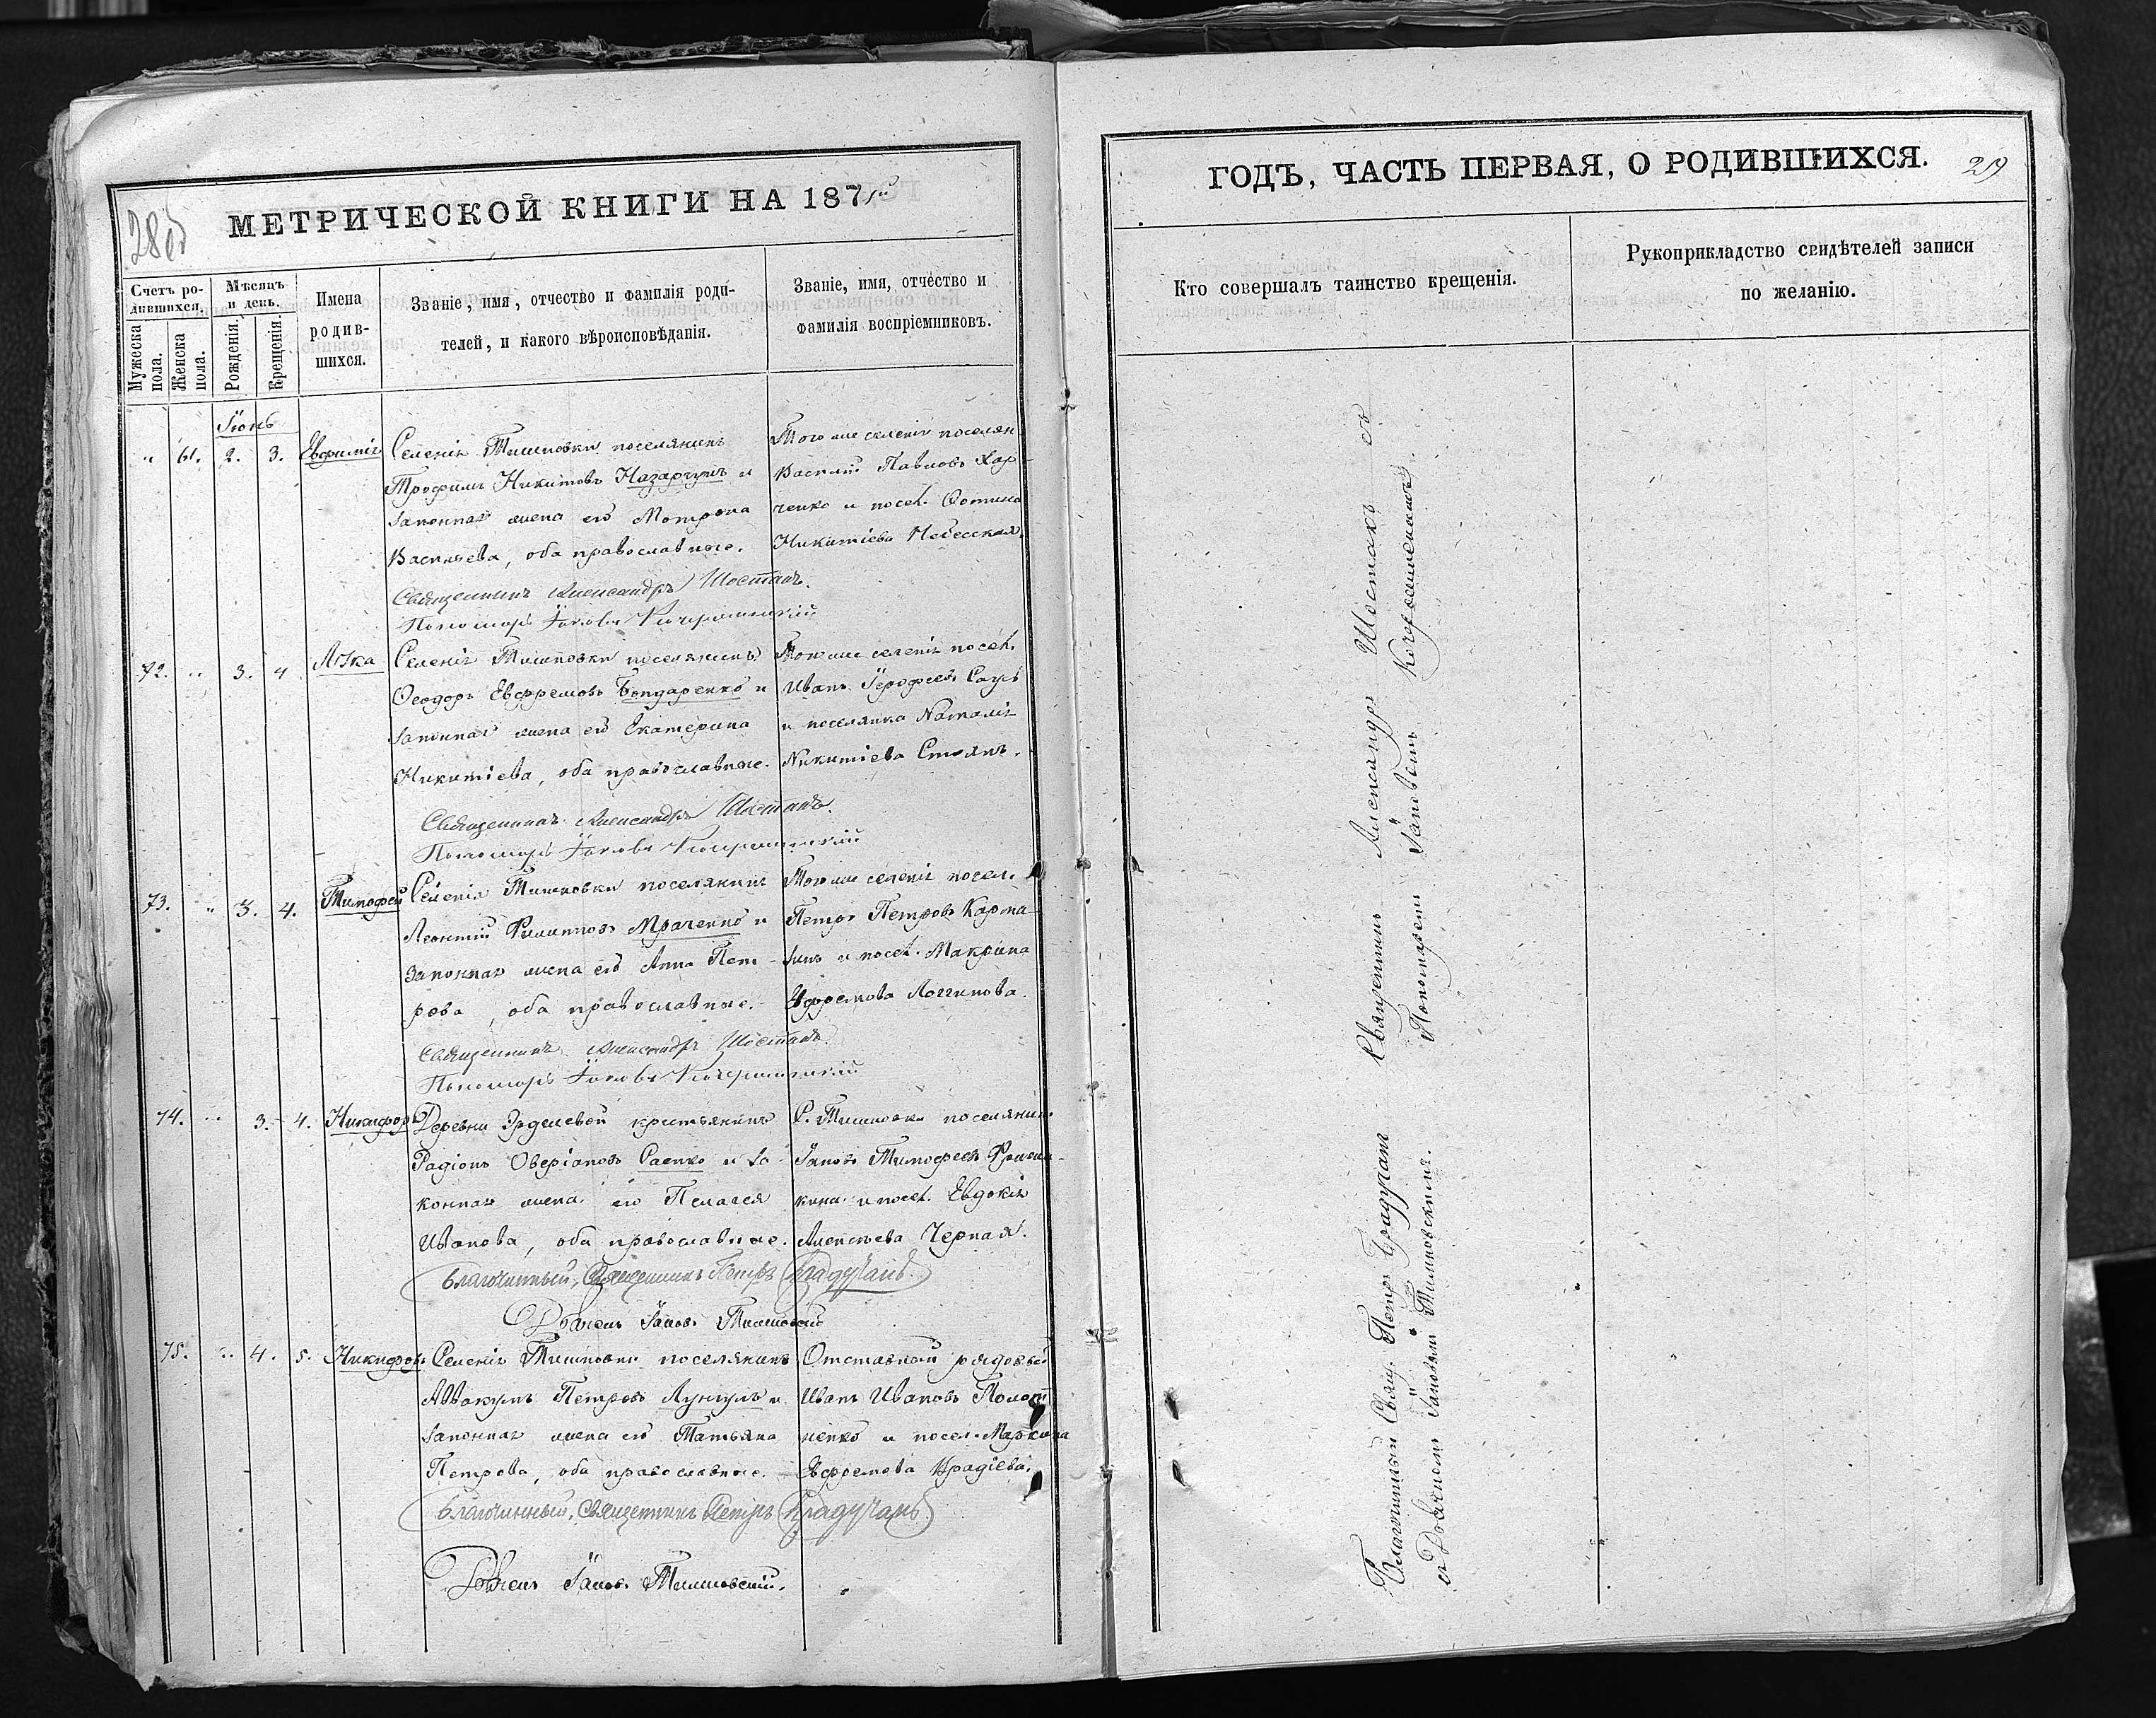 28об
МЕТРИЧЕСКОЙ КНИГИ НА 1871й
Счетъ ро-
дившихся.
Мужеска пола.
Женска пола.
Мѣсяцъ
и день.
Рожденія.
Крещенія.
Имена
родив-
шихся.
Званіе, имя, отчество и фамилія роди-
телей, и какого вѣроисповѣданія.
Званіе, имя, отчество и
фамилія воспріемниковъ.
Іюнь
" 61. 2. 3. Евфимія
Селенія Тишковки поселянинъ
Трофимъ Никитовъ Назарчукъ и
законная жена его Мотрона
Васильева, оба православные.
Того же селенія поселян
Василій Павловъ Хар-
ченко и посел. Фотина
Никитіева Небесская.
Священникъ Александръ Шостакъ.
Пономарь Іаковъ
72. " 3. 4
Селенія Тишковки поселянинъ
Ѳеодоръ Евфремовъ Бондаренко и
законная жена его Екатерина
Никитіева, оба православные.
Того же селенія посел.
Иванъ Іерофеевъ Саул
и поселянка Наталія
Никитіева Стоянъ.
Священникъ Александръ Шостакъ.
Пономарь Іаковъ
73. " 3. 4. Тимофей
Селенія Тишковки поселянинъ
Леонтій Филипповъ Мраченко и
законная жена его Анна Пет-
рова, оба православные.
Того же селенія посел.
Петръ Петровъ Карма-
зинъ и посел. Макрина
Ефремова Логгинова.
Священникъ Александръ Шостакъ.
Пономарь Іаковъ
74. " 3. 4. Никифоръ
Деревни Эрделевой крестьянинъ
Радіонъ Оверіановъ Саенко и за-
конная жена его Пелагея
Иванова, оба православные.
С. Тишковки поселянинъ
Іаковъ Тимофеевъ
и посел. Евдокія
Алексѣева Черная.
Благочинный, Священникъ Петръ Брадучанъ.
Дьячекъ Іаковъ Тишковскій
75. " 4. 5. Никифоръ
Селенія Тишковки поселянинъ
Аввакумъ Петровъ Лунгулъ и
законная жена его Татьяна
Петрова, оба православные.
Отставной рядовый
Иванъ Ивановъ
ненко и посел. Маркина
Евфремова Врадіева.
Благочинный, Священникъ Петръ Брадучанъ.
Дьячекъ Іаковъ Тишковскій.
ГОДЪ, ЧАСТЬ ПЕРВАЯ, О РОДИВШИХСЯ.
29
Кто совершалъ таинство крещенія.
Рукоприкладство свидѣтелей записи
по желанію.
Священникъ Александръ Шостакъ съ
Пономаремъ Іаковомъ
Благочинный Свящ. Петръ Брадучанъ
съ Дьячкомъ Іаковомъ Тишковскимъ.